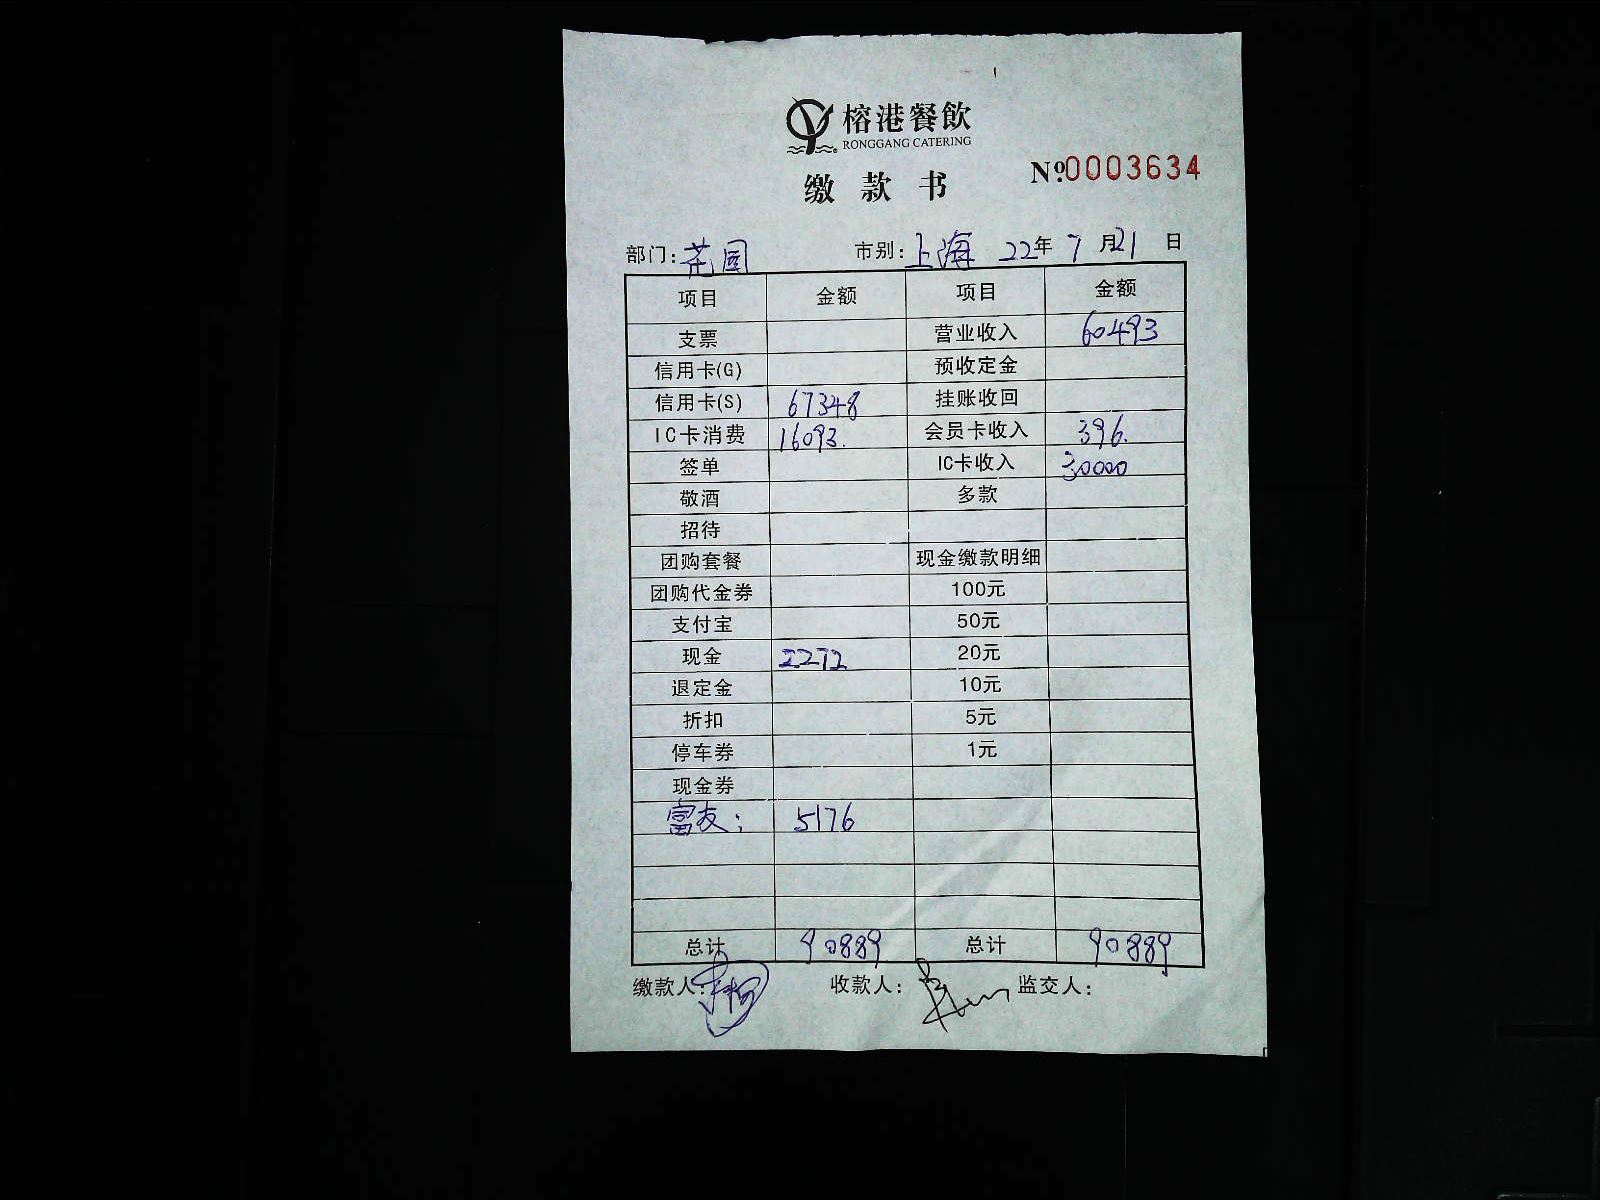 榕港餐飲
RONGGANG CATERING
缴款书 №0003634
部门: 市别: 上海 22年 7月21日
项目 金额 项目 金额
支票 营业收入 60493
信用卡(G) 预收定金
信用卡(S) 67348 挂账收回
IC卡消费 16093. 会员卡收入 396.
签单 IC卡收入 30000
敬酒 多款
招待
团购套餐 现金缴款明细
团购代金券 100元
支付宝 50元
现金 2272 20元
退定金 10元
折扣 5元
停车券 1元
现金券
富友: 5176
总计 90889 总计 90889
缴款人: 收款人: 监交人: